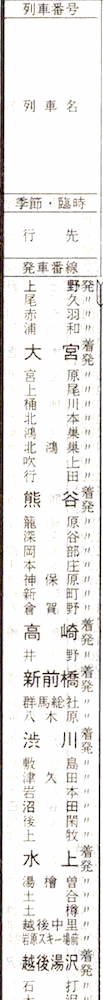 列車番号
列車名
季節・臨時
行先
発車番線
上野発
尾久〃
赤羽〃
浦和〃
大宮着発
宮原〃
上尾〃
桶川〃
北本〃
鴻巣〃
北鴻巣〃
吹上〃
行田〃
熊谷着発
籠原〃
深谷〃
岡部〃
本庄〃
神保原〃
新町〃
倉賀野〃
高崎着発
井野〃
新前橋着発
群馬総社〃
八木原〃
渋川着発
敷島〃
津久田〃
岩本〃
沼田〃
後閑〃
上牧〃
水上着発
湯檜曽〃
土合〃
土樽〃
越後中里〃
岩原スキー場前〃
越後湯沢着発
石打〃